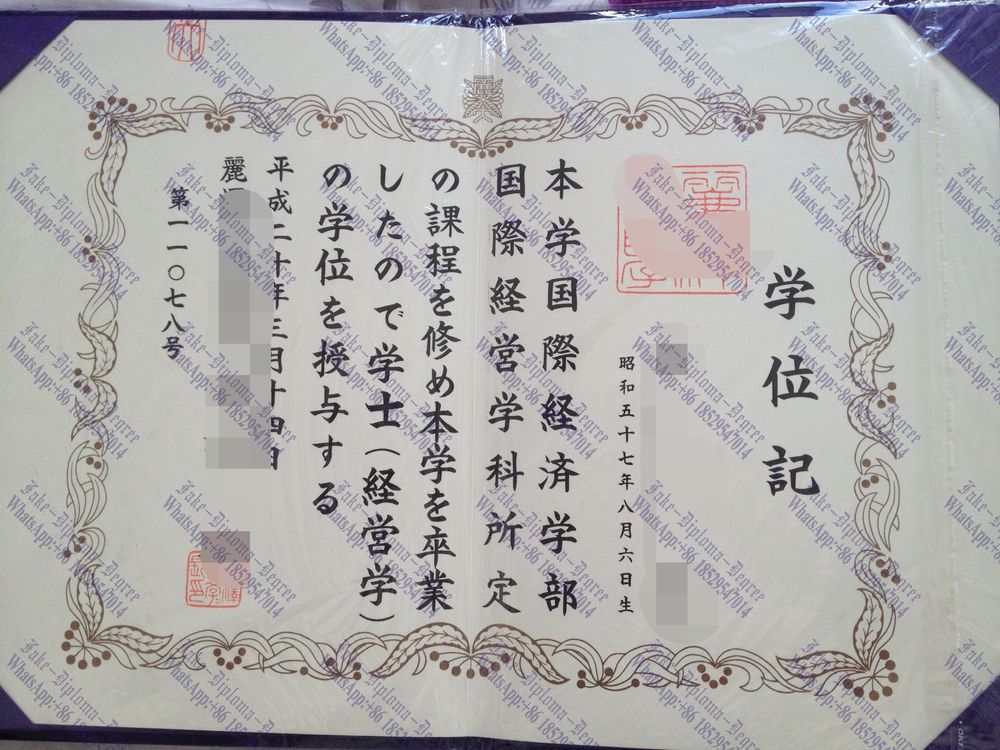 学位記
昭和五十七年八月六日生
本学国際経済学部
国際経営学科所定
の課程を修め本学を卒業
したので学士(経営学)
の学位を授与する
平成二十年三月十四日
麗
第一一〇七八号
Fake-Diploma-Degree
WhatsApp:+86 18529547014